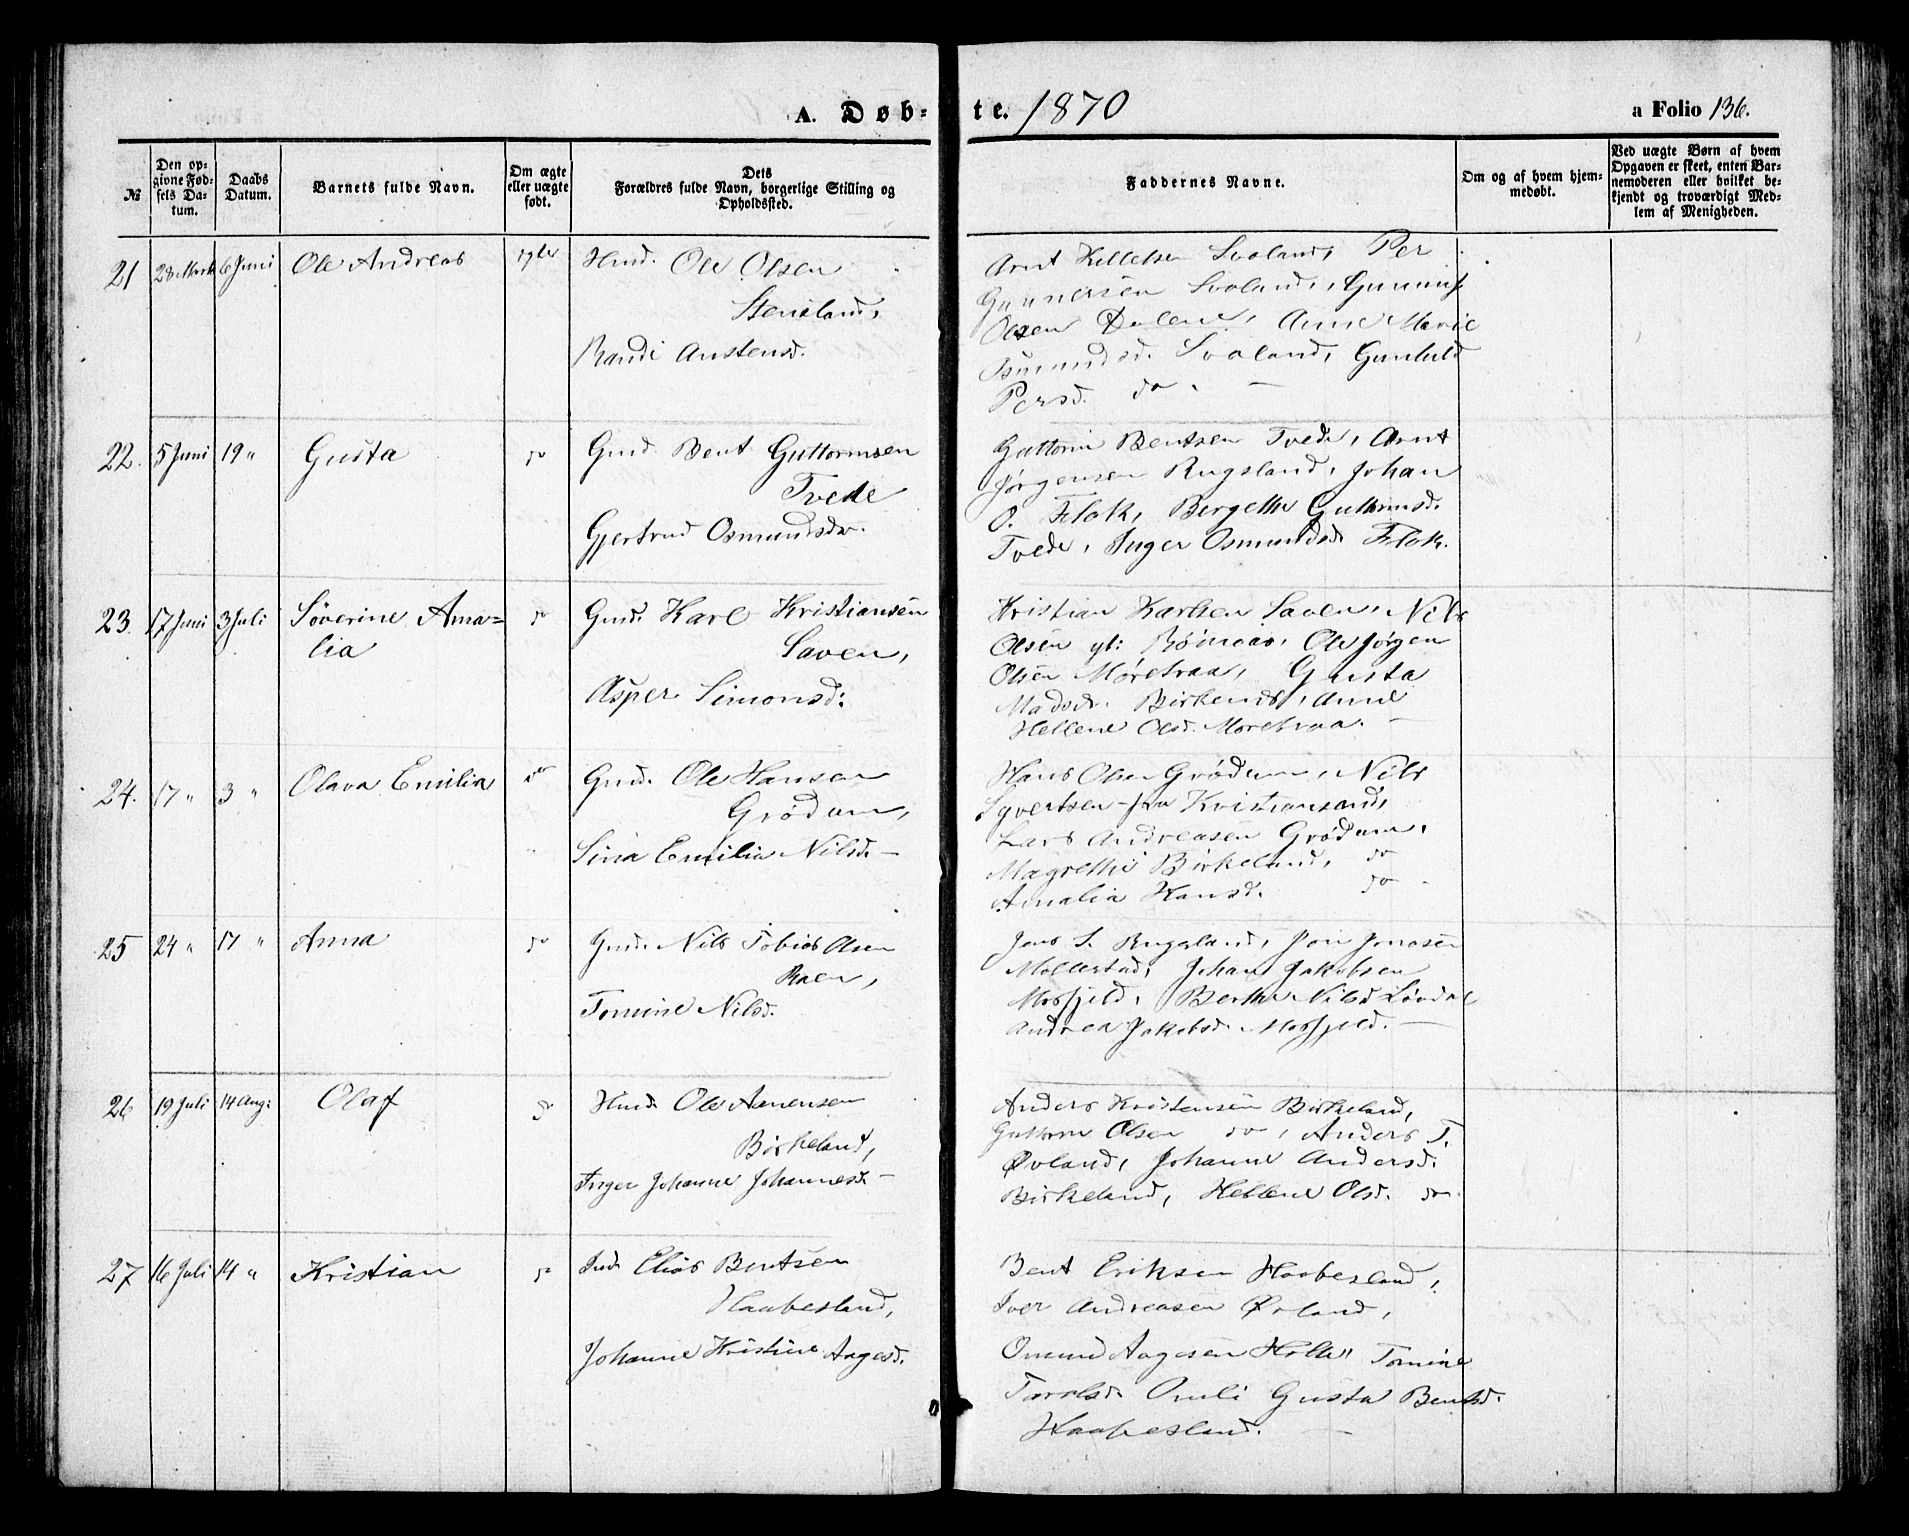 A. Døb- te. 1870
a Folio 136.
№
Den op-
givne Fød-
sels Da-
tum.
Daabs
Datum.
Barnets fulde Navn.
Om ægte
eller uægte
født.
Dets
Forældres fulde Navn, borgerlige Stilling og
Opholdssted.
Faddernes Navne.
Om og af hvem hjem-
medøbt.
Ved uægte Børn af hvem
Opgaven er skeet, enten Bar-
nemoderen eller hvilket be-
kjendt og troværdigt Med-
lem af Menigheden.
21 28 Marts 6 Juni Ole Andreas Husd. Ole Olsen
Stensland,
Randi Anstensd.
Arnt Kelletsen Svaland, Per
Gunnersen Svaland,
Olsen Dalene, Anne Marie
Svaland, Gunhild
Persd. do.
22. 5 Juni 19 " Gusta do Gmd. Bent Guttormsen
Tvede
Gjertrud Osmundsdr.
Guttorm Bentsen Tvede, Arnt
Jørgensen Rugsland, Johan
O. Flak, Bergethe Guttormsd.
Tvede, Inger Osmundsd. Flak.
23. 17 Juni 3 Juli Søverine Ama-
lia
do Gmd. Karl Kristiansen
Saven,
Asper Simonsd:
Kristian Karlsen Saven, Nils
Olsen yt: Ole Jørgen
Olsen Møretraa, Gusta
Madsdr. Birkenes, Anne
Hellene Olsd. Moretraa. —
24. 17 " 3 " Olava Emilia do Gmd. Ole Hansen
Grødum,
Sina Emilia Nilsd. —
Hans Olsen Grødum, Nils
Syvertsen fra Kristiansand,
Lars Andreasen Grødum,
Magrethe Birkeland, do
Amalia Hansd. do
25 24 " 17 " Anna do Gmd. Nils Tobias Olsen
Raen,
Tomine Nilsd.
Jens S. Rugsland, Jon Jonasen
Mollestad, Johan Jakobsen
Mosfjeld, Berthe Nilsd Løvdal
Andrea Jakobsd. Mosfjeld. —
26 19 Juli 14 Aug: Olaf do Husd. Ole Aanensen
Birkeland,
Inger Johanne Johannesd. —
Anders Kristensen Birkeland,
Guttorm Olsen do, Anders T.
Øvland, Johanne Andersd.
Birkeland, Hellene Olsd. do.
27 16 Juli 14 " Kristian do Ind. Elias Bentsen
Haabesland,
Johanne Kristine Aagesd.
Bent Eriksen Haabesland,
Iver Andreasen Øvland,
Omund Aagesen Holte, Tomine
Taralsd. Omli Gusta Bentsd.
Haabesland. —